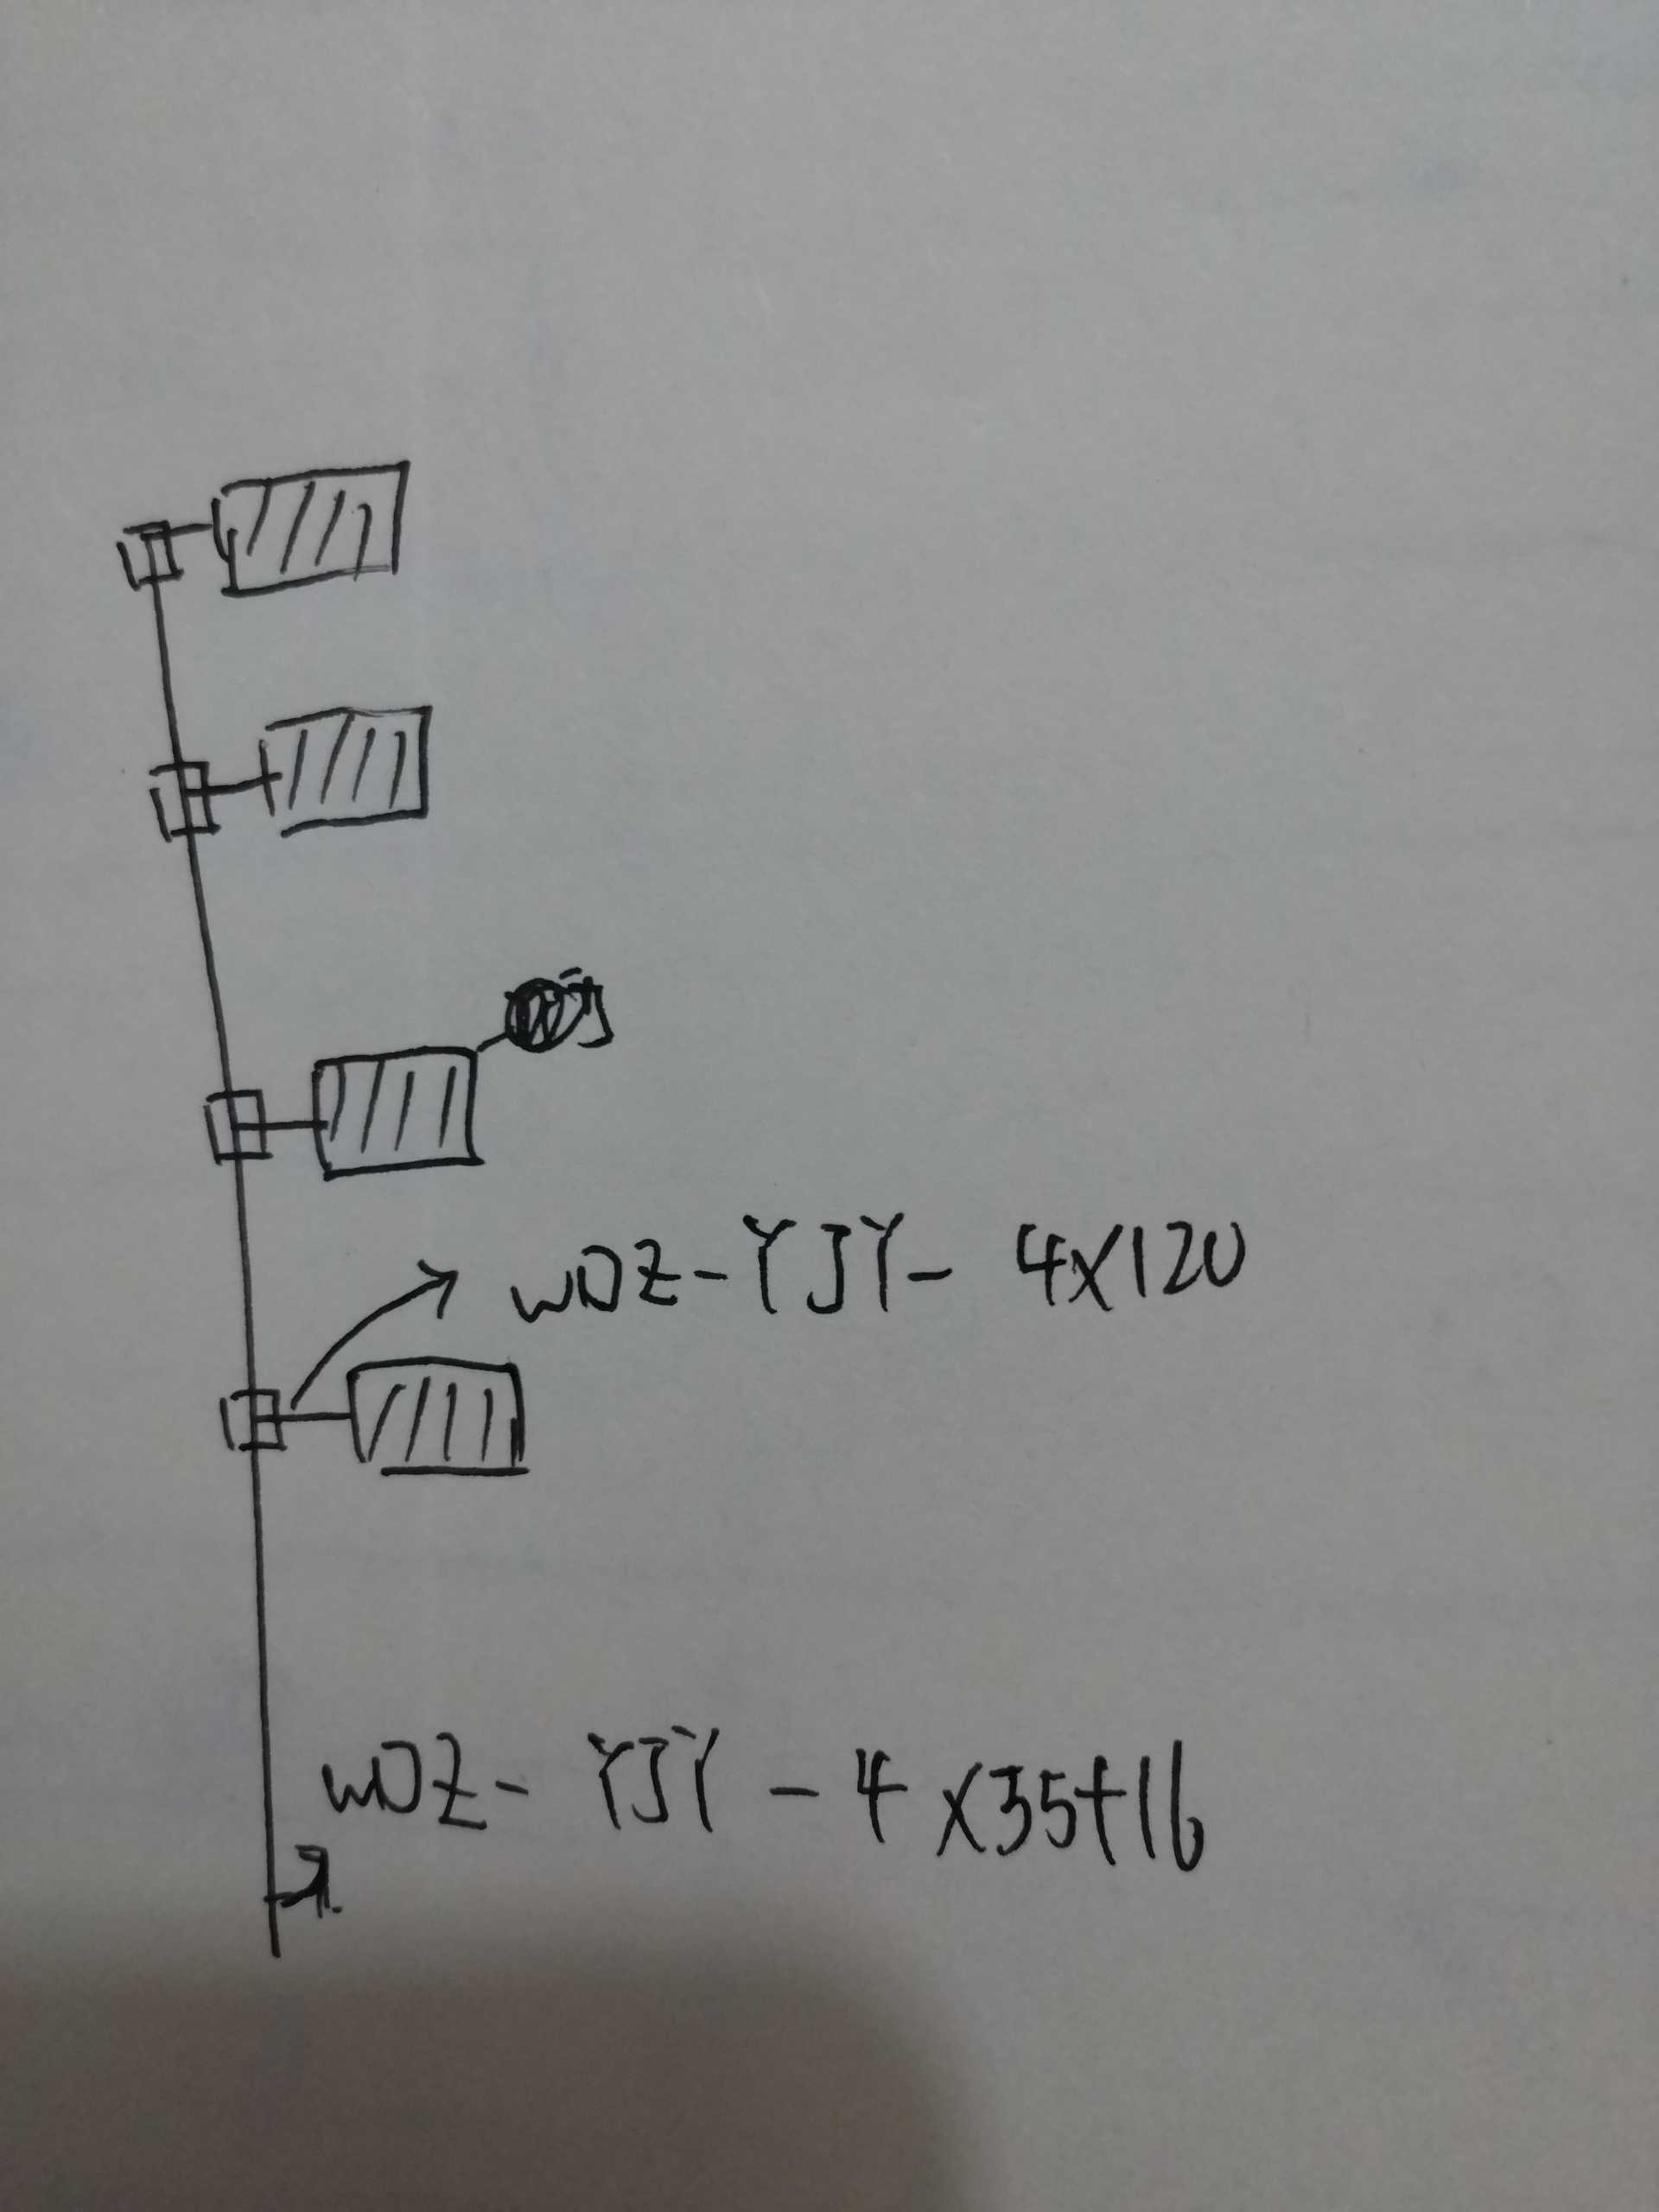 WDZ-YJY-4X120
WDZ-YJY-4X35+16